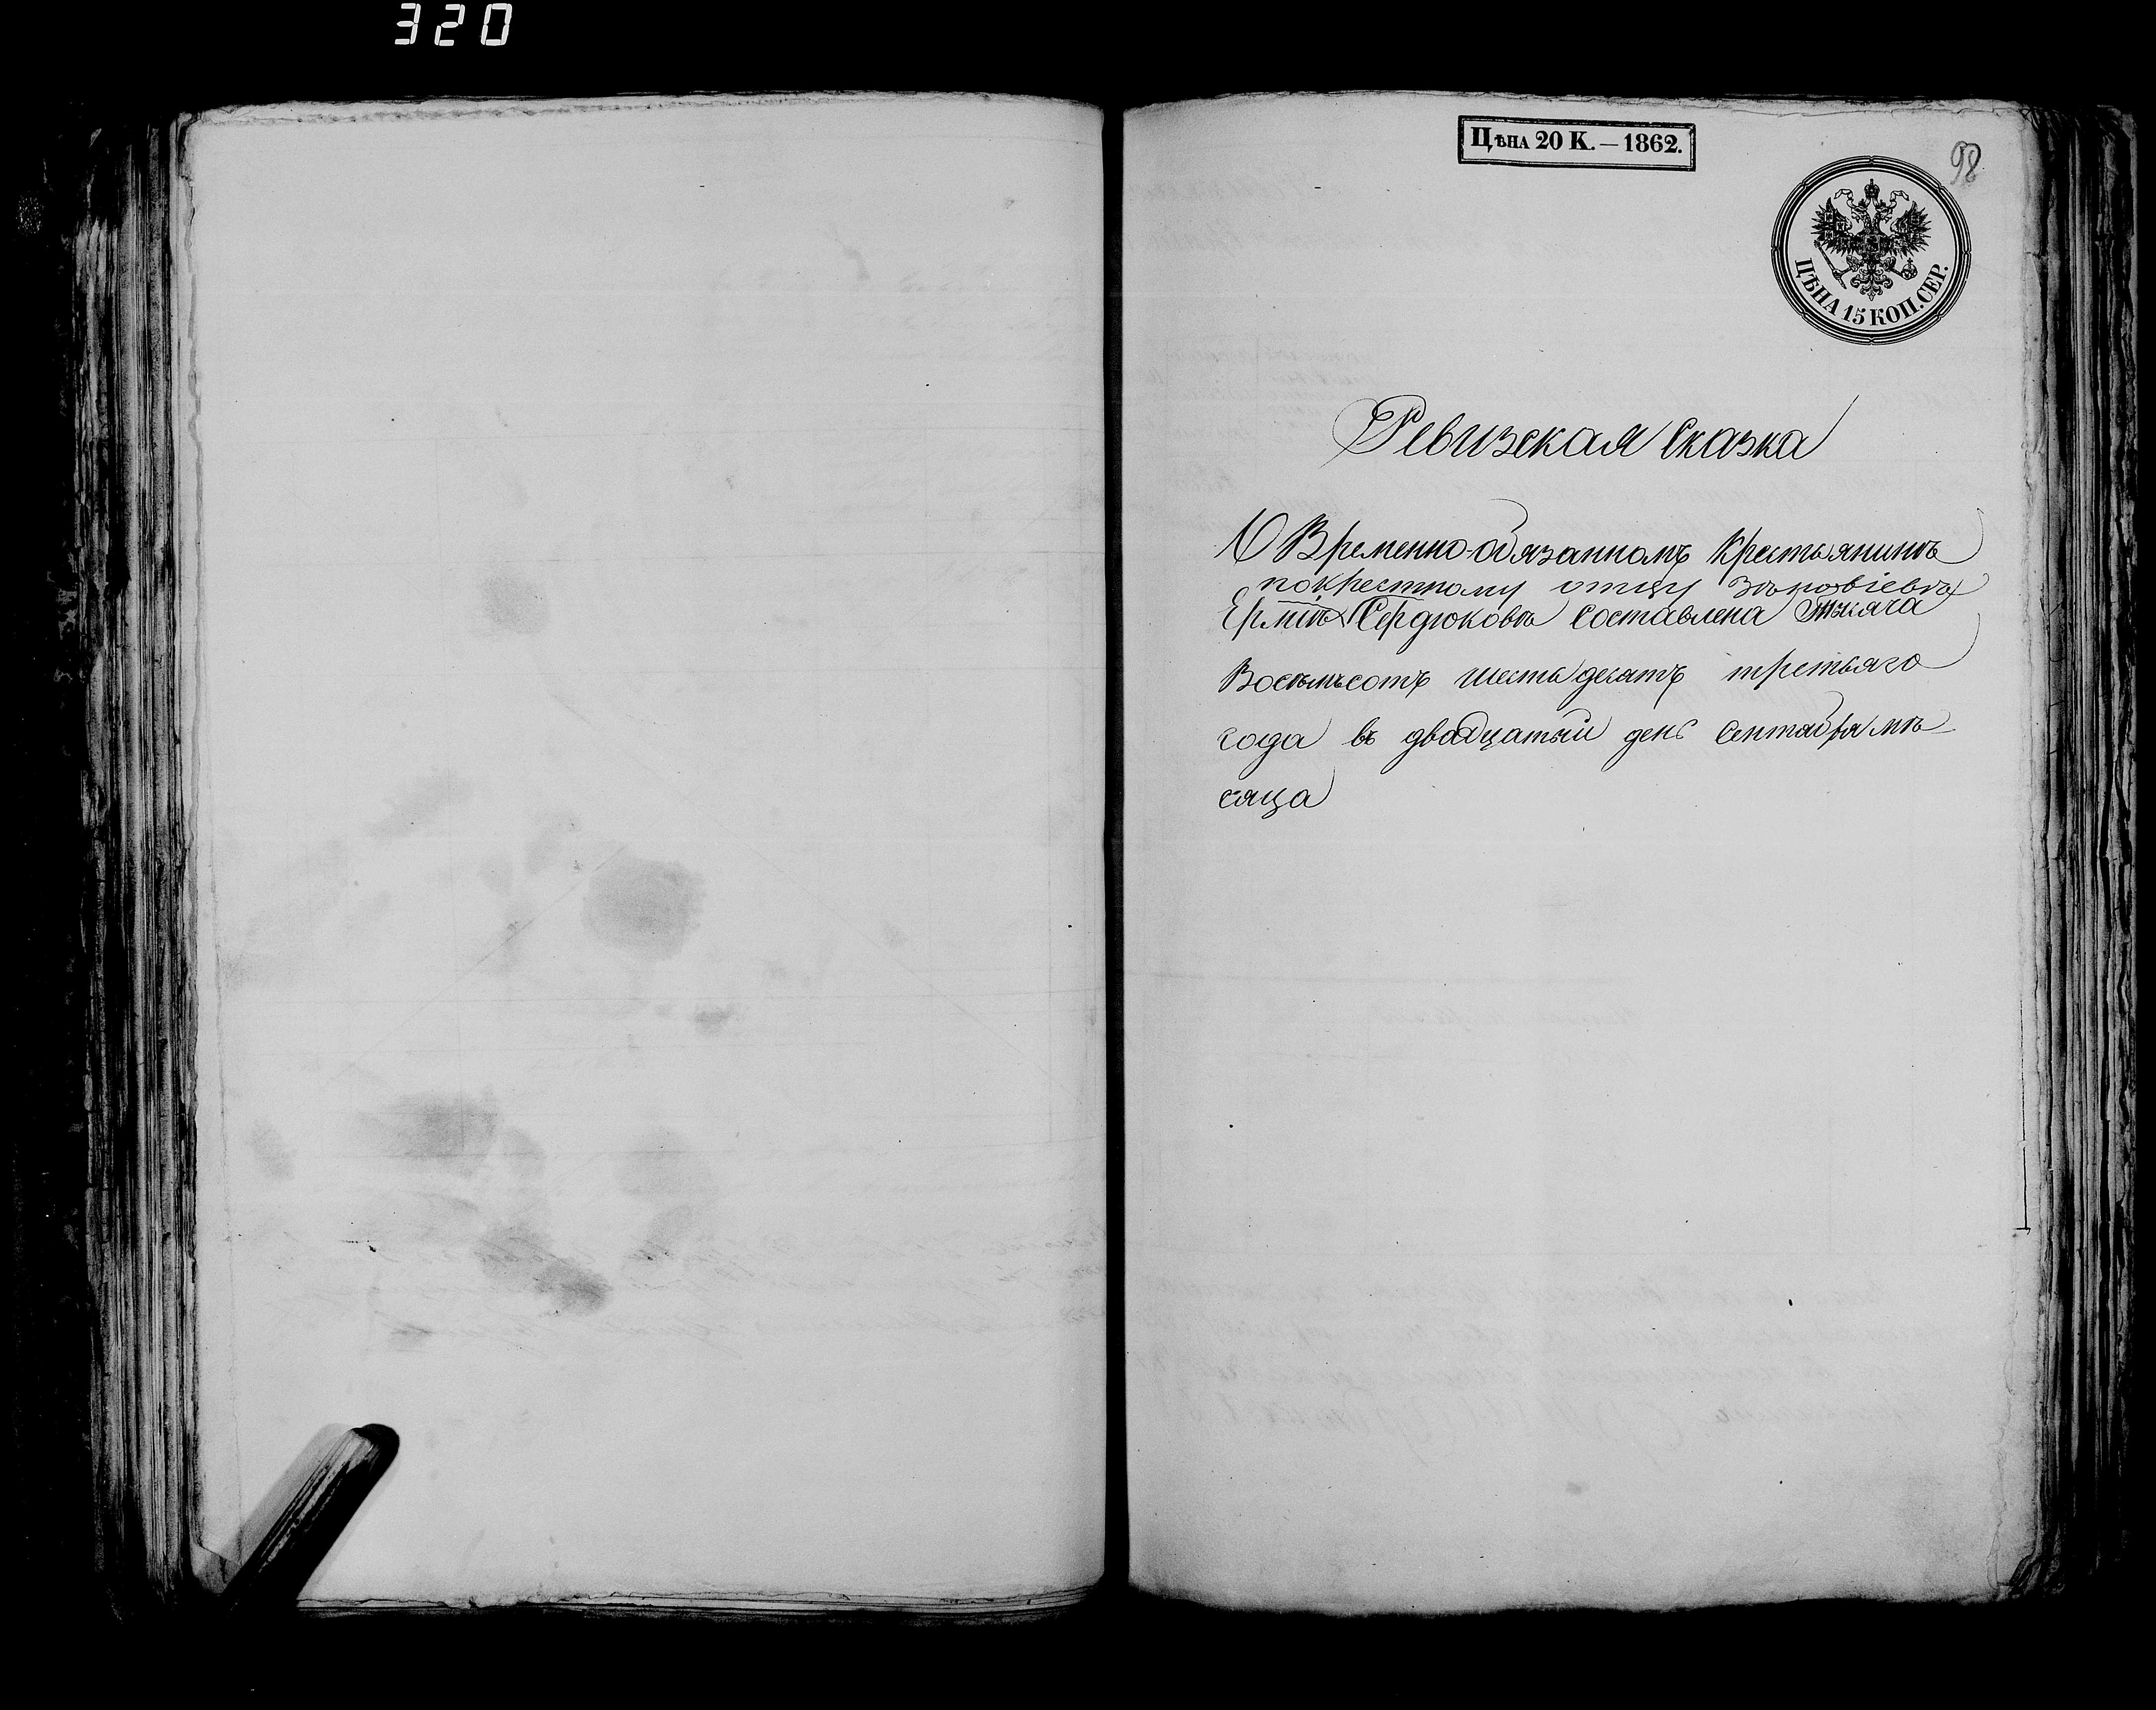 320
Цѣна 20 К. — 1862.
98
ЦѢНА 15 КОП. СЕР.
Ревизская Сказка
О Временно-обязанномъ крестьянинѣ
покрестному отцу
Ерміѣ Сердюковѣ Составлена Тысяча
Восемьсотъ шестьдесятъ третьяго
года въ двадцатый день Сентября мѣ
сяца